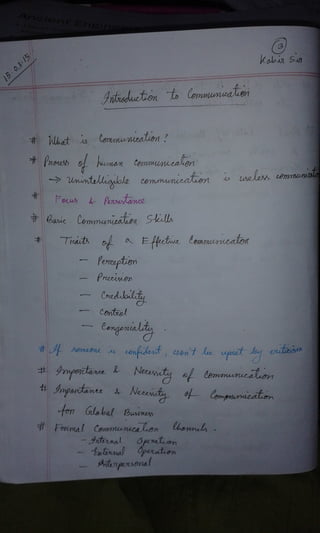 3
15.01.15
Kabir Sir
Introduction to Communication
# What is Communication?
* Process of human communication
→ Unintelligible communication is useless communication
* Focus & Persistance
# Basic Communication Skills
* Traits of a Effective Communicator
- Perception
- Precision
- Credibility
- Control
- Congeniality.
# If someone is confident, won't be upset by criticism
# Importance & Necessity of Communication
# Importance & Necessity of Communication
for Global Business
# Formal Communication Channels.
- Internal Operation
- External Operation
- Interpersonal